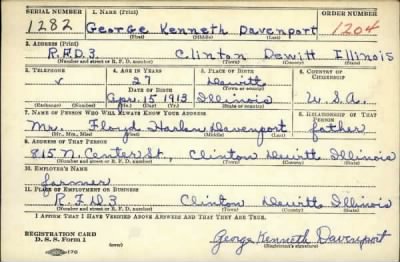 SERIAL NUMBER 1. NAME (Print) ORDER NUMBER
1282 George Kenneth Davenport 1204
(First) (Middle) (Last)
2. ADDRESS (Print)
R.F.D.3. Clinton Dewitt Illinois
(Number and street or R. F. D. number) (Town) (County) (State)
3. TELEPHONE 4. AGE IN YEARS 5. PLACE OF BIRTH 6. COUNTRY OF CITIZENSHIP
27 Dewitt
DATE OF BIRTH (Town or county)
Apr. 15 1913 Illinois U.S.A.
(Exchange) (Number) (Mo.) (Day) (Yr.) (State or country)
7. NAME OF PERSON WHO WILL ALWAYS KNOW YOUR ADDRESS 8. RELATIONSHIP OF THAT PERSON
Mr. Floyd Harlan Davenport father
(Mr., Mrs., Miss) (First) (Middle) (Last)
9. ADDRESS OF THAT PERSON
815 N. Center St., Clinton Dewitt Illinois
(Number and street or R. F. D. number) (Town) (County) (State)
10. EMPLOYER'S NAME
farmer
11. PLACE OF EMPLOYMENT OR BUSINESS
R.F.D.3 Clinton Dewitt Illinois
(Number and street or R. F. D. number) (Town) (County) (State)
I AFFIRM THAT I HAVE VERIFIED ABOVE ANSWERS AND THAT THEY ARE TRUE.
REGISTRATION CARD
D. S. S. Form 1 (over) George Kenneth Davenport
(Registrant's signature)